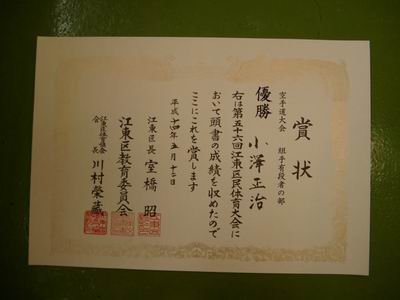 賞状
空手道大会 組手有段者の部
優勝 小澤正治
右は第五十六回江東区民体育大会に
おいて頭書の成績を収めたので
ここにこれを賞します
平成十四年五月十二日
江東区長 室橋昭
江東区教育委員会
江東区体育協会
会長 川村榮蔵